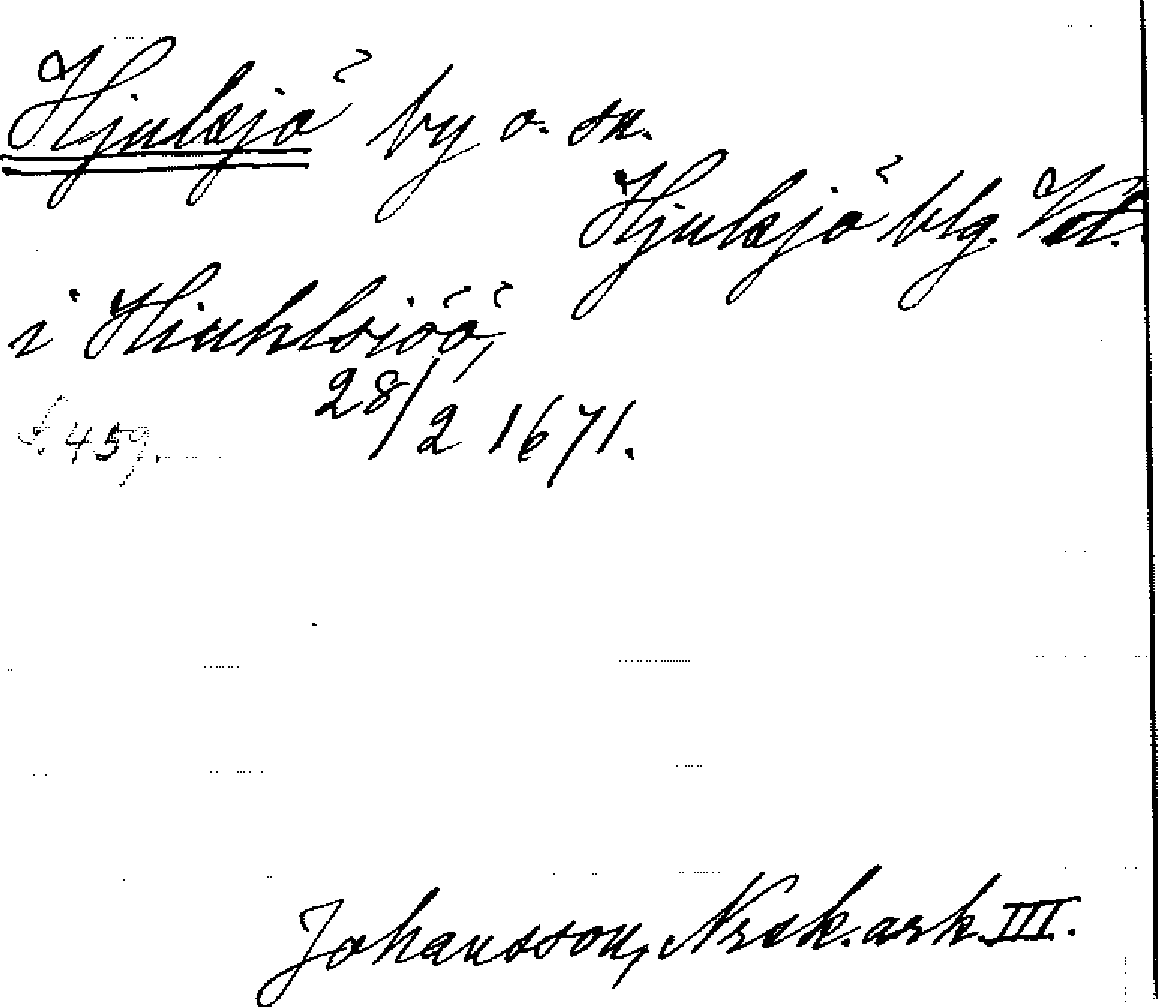 Hjulsjö by o. sn.
Hjulsjö blg. Vstm.
i Hiuhlsiöö,
28/2 1671.
S. 459.
Johansson, Nrsk. ark. III.